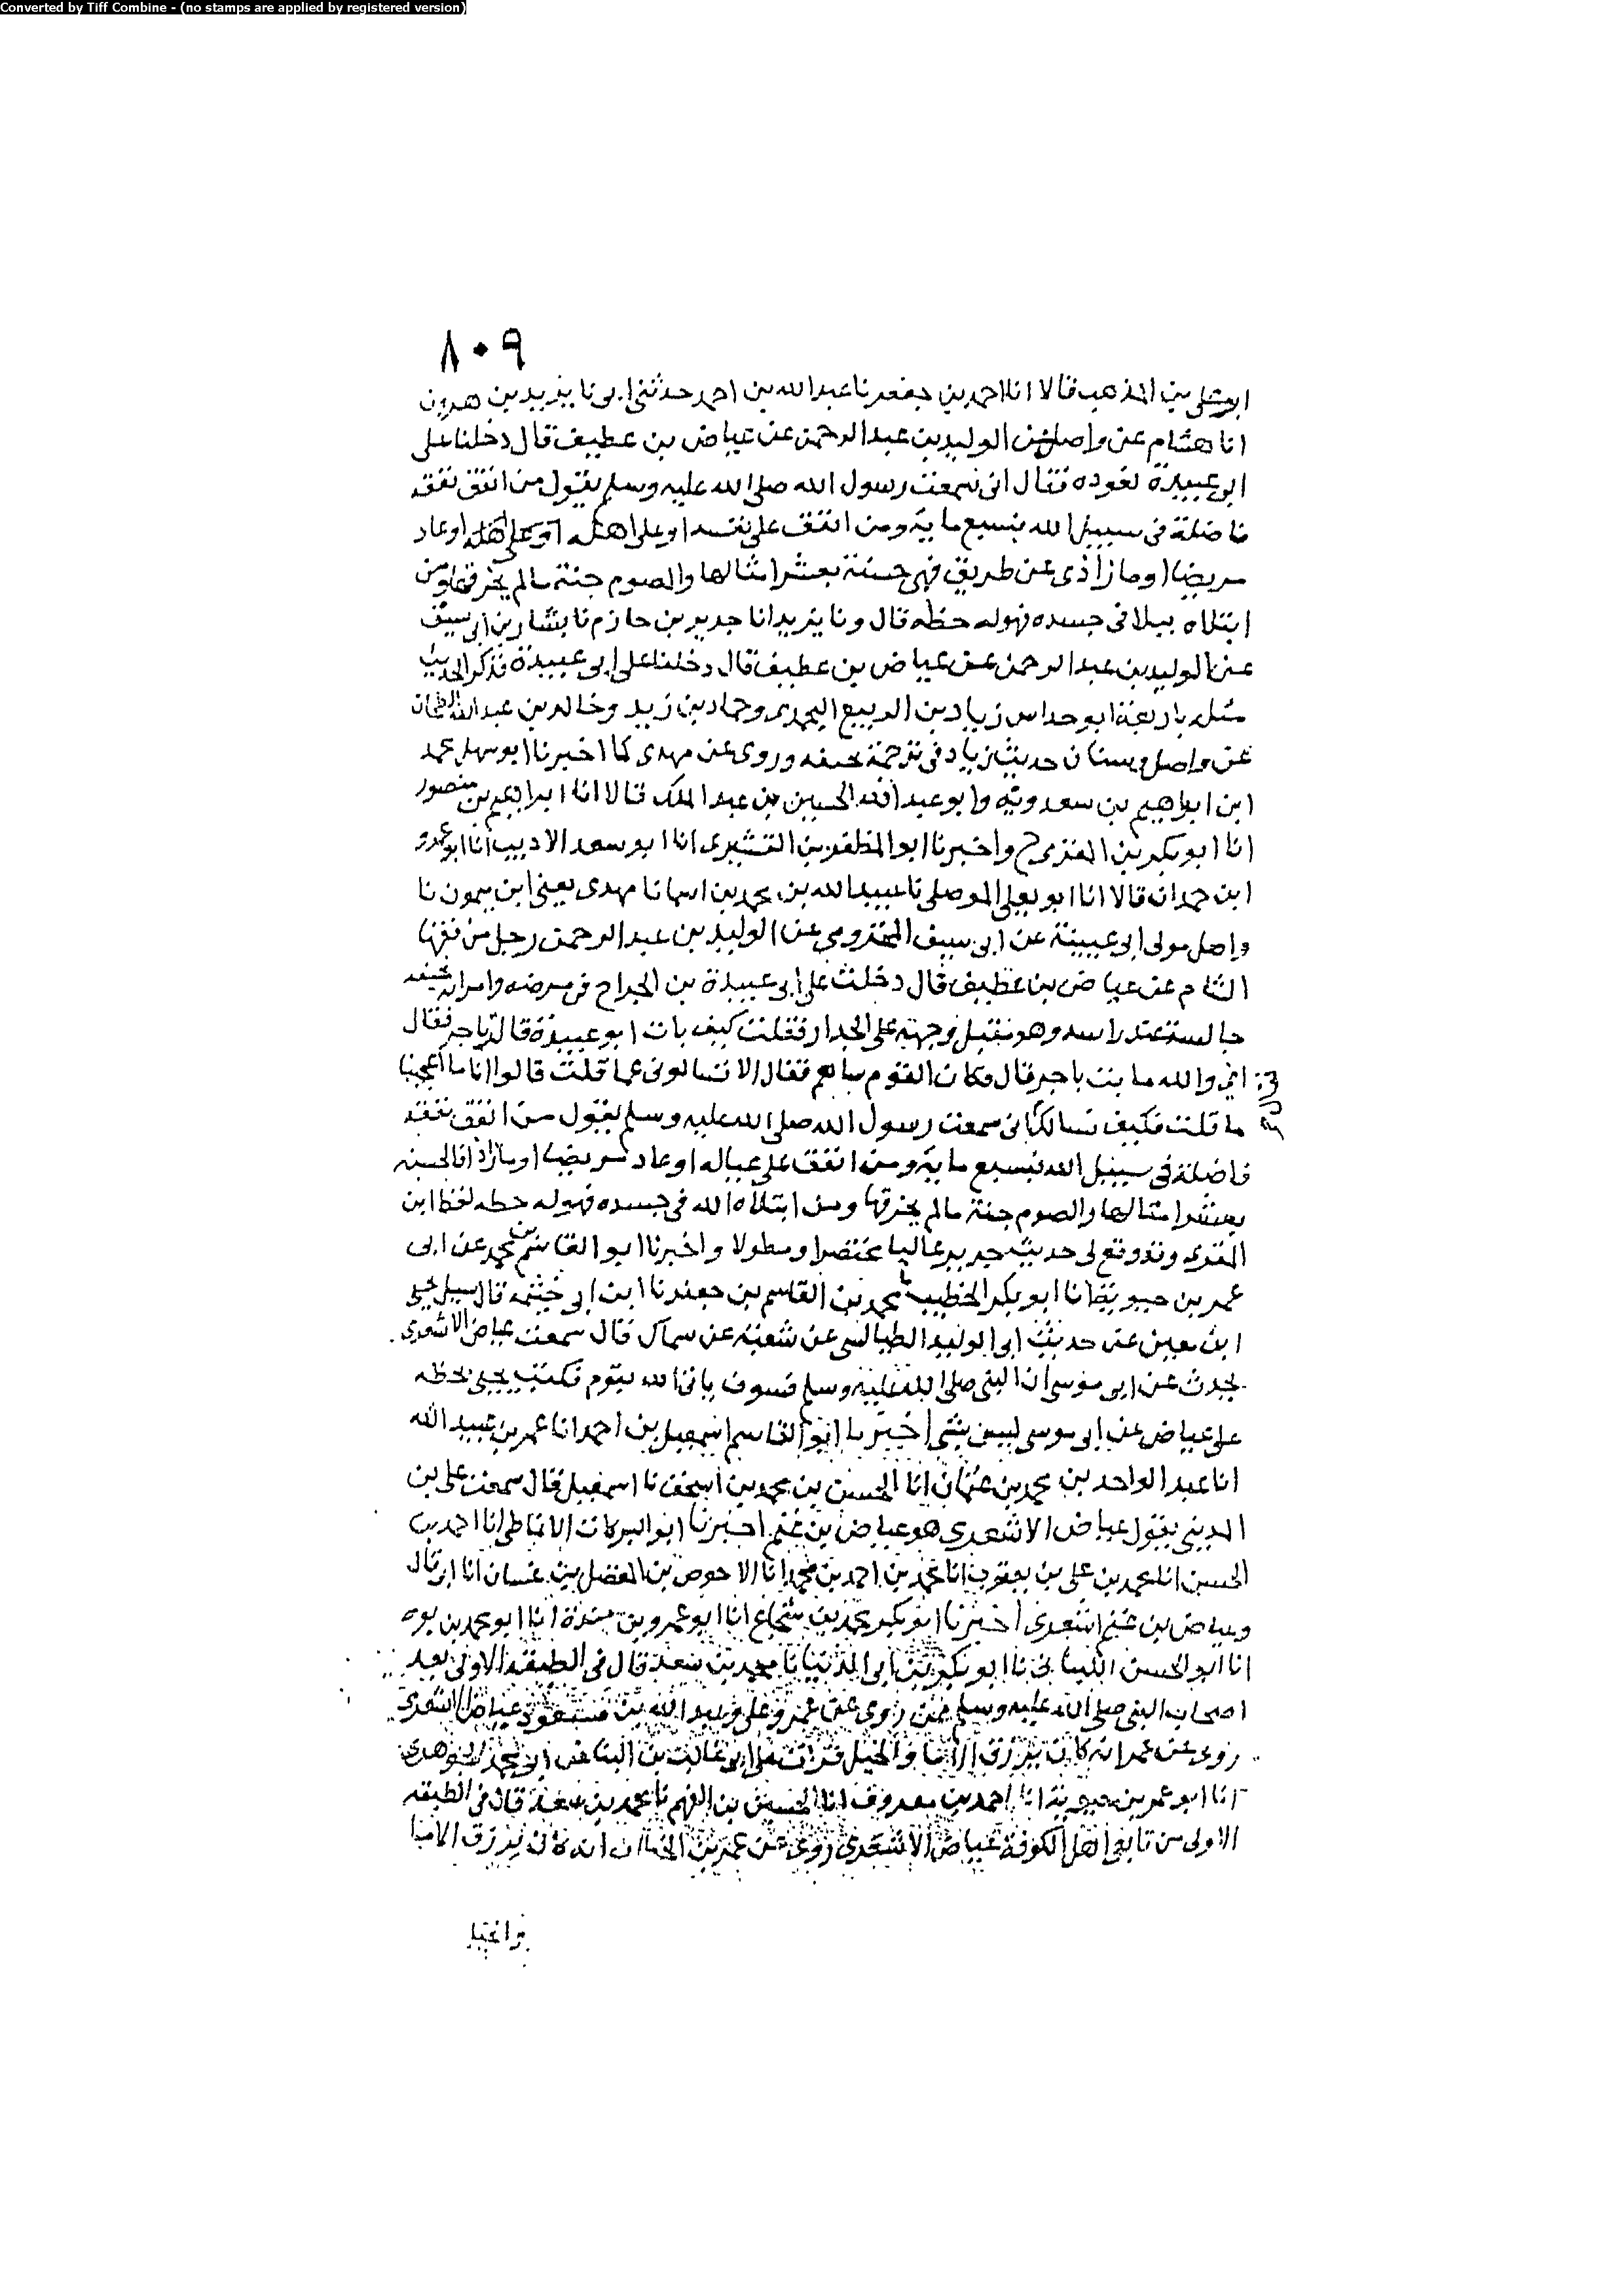 Converted by Tiff Combine - (no stamps are applied by registered version)
٨٠٩
ابو علي بن المذهب قالا انا احمد بن جعفر نا عبد الله بن احمد حدثني ابي نا يزيد بن هرون
انا هشام عن واصل عن الوليد بن عبد الرحمن عن عياض بن عطيف قال دخلنا على
ابو عبيدة نعوده فقال اني سمعت رسول الله صلى الله عليه وسلم يقول من انفق نفقة
فاضلة في سبيل الله بسبع ماية ومن انفق على نفسه او على اهله او عاد
مريضا او ماز اذى عن طريق فهي حسنة بعشر امثالها والصوم جنة مالم يخرقها ومن
ابتلاه ببلا في جسده فهو له حطه قال ونا يزيد انا جرير بن حازم نا بشار بن ابي سيف
عن الوليد بن عبد الرحمن عن عياض بن عطيف قال دخلنا على ابي عبيدة فذكر الحديث
مثله باربعة ابو خداس زياد بن الربيع اليحمدي وحماد بن زيد وخالد بن عبد الله الطحان
عن واصل حديث زياد في ترجمة وروى عن مهدي كما اخبرنا ابو سهل محمد
ابن ابراهيم بن سعدويه وابو عبد الله الحسين بن عبد الملك قالا انا ابراهيم بن منصور
انا ابو بكر بن المقري ح واخبرنا ابو المظفر بن القشيري انا ابو سعد الاديب انا ابو عمرو
ابن حمدان قالا انا ابو يعلى الموصلي نا عبد الله بن محمد بن اسما نا مهدي يعني ابن ميمون نا
واصل مولى ابي عيينة عن ابي سيف المخزومي عن الوليد بن عبد الرحمن رجل من فقها
الشام عن عياض بن عطيف قال دخلت على ابي عبيدة بن الجراح في مرضه وامراته
جالسة عند راسه وهو مقبل بوجهه على الجدار فقلت كيف بات ابو عبيدة قالت باجر فقال
اني والله ما بت باجر قال وكان القوم ساهم فقال الا تسالوني عما قلت قالوا انا ما اعجبنا
ما قلت فكيف نسالك اني سمعت رسول الله صلى الله عليه وسلم يقول من انفق نفقة
فاضلة في سبيل الله فبسبع ماية ومن انفق على عياله او عاد مريضا او ماز اذا فالحسنة
بعشر امثالها والصوم جنة مالم يخرقها ومن ابتلاه الله في جسده فهو له حطه لفظ ابن
المقري وقد وقع لي حديث جرير عاليا مختصرا ومطولا واخبرنا ابو القاسم بن محمد عن ابي
عمر بن حيويه انا ابو بكر الخطيب نا محمد بن القاسم بن جعفر نا ابن ابي خيثمة قال سيل يحيى
ابن معين عن حديث ابي الوليد الطيالسي عن شعبة عن سماك قال سمعت عياض الاشعري
يحدث عن ابي موسى ان النبي صلى الله عليه وسلم فسوف ياتي الله بقوم فكتب يحيى بخطه
على عياض عن ابي موسى ليس بشي اخبرنا ابو القاسم اسمعيل بن احمد انا عمر بن عبيد الله
انا عبد الواحد بن محمد بن عثمان انا الحسن بن محمد بن اسحق نا اسمعيل قال سمعت علي بن
المديني يقول عياض الاشعري هو عياض بن غنم اخبرنا ابو البركات الانماطي انا احمد بن
الحسن انا محمد بن علي بن يعقوب انا محمد بن احمد بن محمد انا الاحوص بن المفضل بن غسان انا ابي قال
وعياض بن غنم اشعري اخبرنا ابو بكر محمد بن شجاع انا ابو عمرو بن مندة انا ابو محمد بن يوه
انا ابو الحسن اللبناني نا ابو بكر بن ابي الدنيا نا محمد بن سعد قال في الطبقة الاولى بعد
اصحاب النبي صلى الله عليه وسلم ممن روى عن عمر وعلي وعبد الله بن مسعود عياض الاشعري
روى عن عمر انه كان يرزق الاما والخيل قرات على ابي غالب بن البنا عن ابي محمد الجوهري
انا ابو عمر بن حيويه انا احمد بن معروف انا الحسين بن الفهم نا محمد بن سعد قال في الطبقة
الاولى من تابعي اهل الكوفة عياض الاشعري روى عن عمر بن الخطاب انه كان يرزق الاما
والخيل